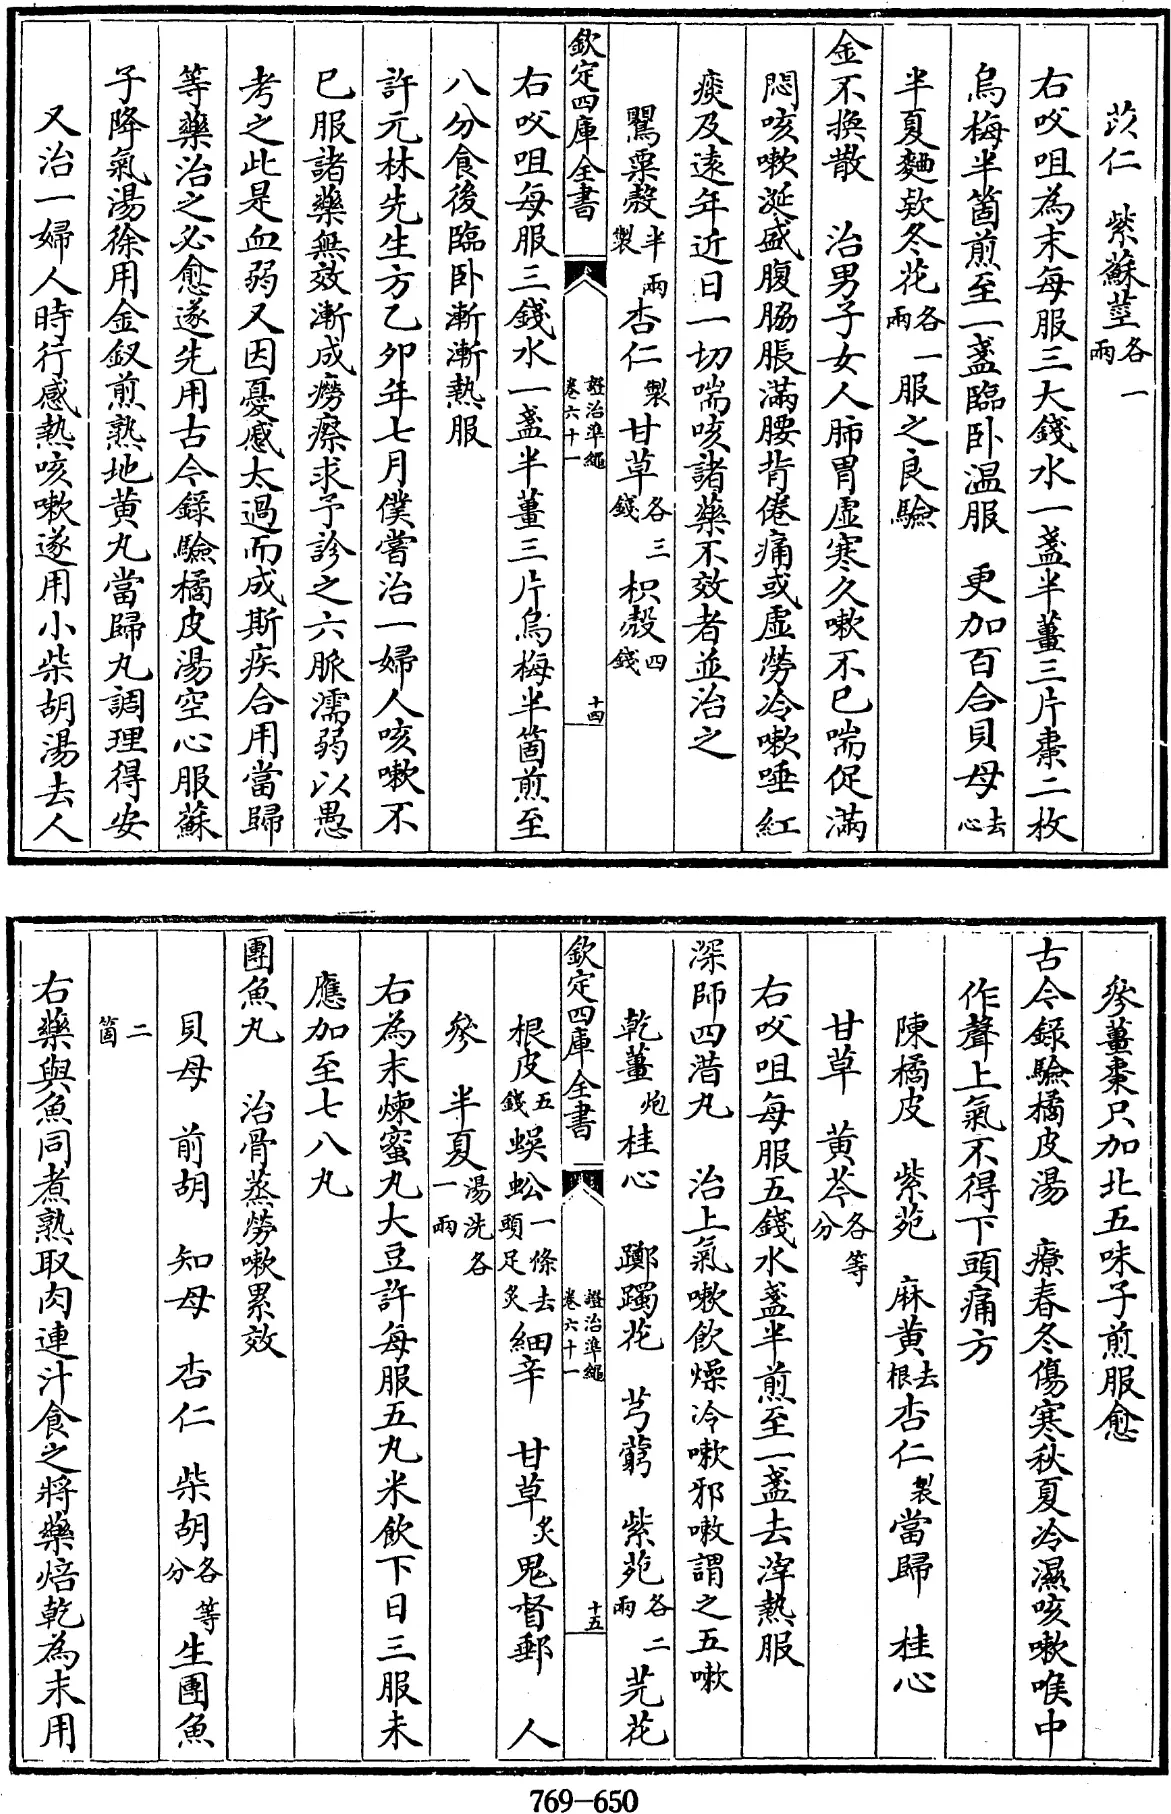 苡仁　紫蘇莖各一兩
右㕮咀為末每服三大錢水一盞半薑三片棗二枚
烏梅半箇煎至一盞臨卧温服　更加百合貝母去心
半夏麯欵冬花各一兩服之良驗
金不換散　治男子女人肺胃虛寒久嗽不已喘促滿
悶咳嗽涎盛腹脇脹滿腰背倦痛或虛勞冷嗽唾紅
痰及遠年近日一切喘咳諸藥不效者並治之
罌粟殼半兩製杏仁製甘草各三錢枳殼四錢
欽定四庫全書　證治準繩卷六十一　十四
右㕮咀每服三錢水一盞半薑三片烏梅半箇煎至
八分食後臨卧漸漸熱服
許元林先生方乙卯年七月僕嘗治一婦人咳嗽不
已服諸藥無效漸成癆瘵求予診之六脈濡弱以愚
考之此是血弱又因憂慼太過而成斯疾合用當歸
等藥治之必愈遂先用古今錄驗橘皮湯空心服蘇
子降氣湯徐用金釵煎熟地黄丸當歸丸調理得安
又治一婦人時行感熱咳嗽遂用小柴胡湯去人
參薑棗只加北五味子煎服愈
古今録驗橘皮湯　療春冬傷寒秋夏冷濕咳嗽喉中
作聲上氣不得下頭痛方
陳橘皮　紫菀　麻黄去根杏仁製當歸　桂心
甘草　黄芩各等分
右㕮咀每服五錢水盞半煎至一盞去滓熱服
深師四淆丸　治上氣嗽飲燥冷嗽邪嗽謂之五嗽
乾薑炮桂心　躑躅花　芎藭　紫菀各二兩芫花
欽定四庫全書　證治準繩卷六十一　十五
根皮五錢蜈蚣一條去頭足炙細辛　甘草炙鬼督郵　人
參　半夏湯洗各一兩
右為末煉蜜丸大豆許每服五丸米飲下日三服未
應加至七八丸
團魚丸　治骨蒸勞嗽累效
貝母　前胡　知母　杏仁　柴胡各等分生團魚
二箇
右藥與魚同煮熟取肉連汁食之將藥焙乾為末用
769-650